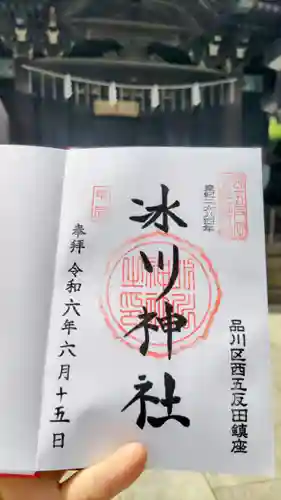 皇紀二六八四年
氷川神社
品川区西五反田鎮座
奉拝 令和六年六月十五日